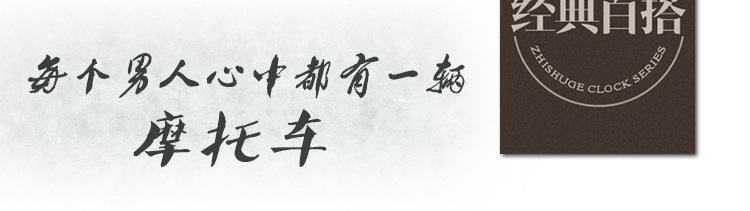 经典百搭
ZHISHUGE CLOCK SERIES
每个男人心中都有一辆
摩托车